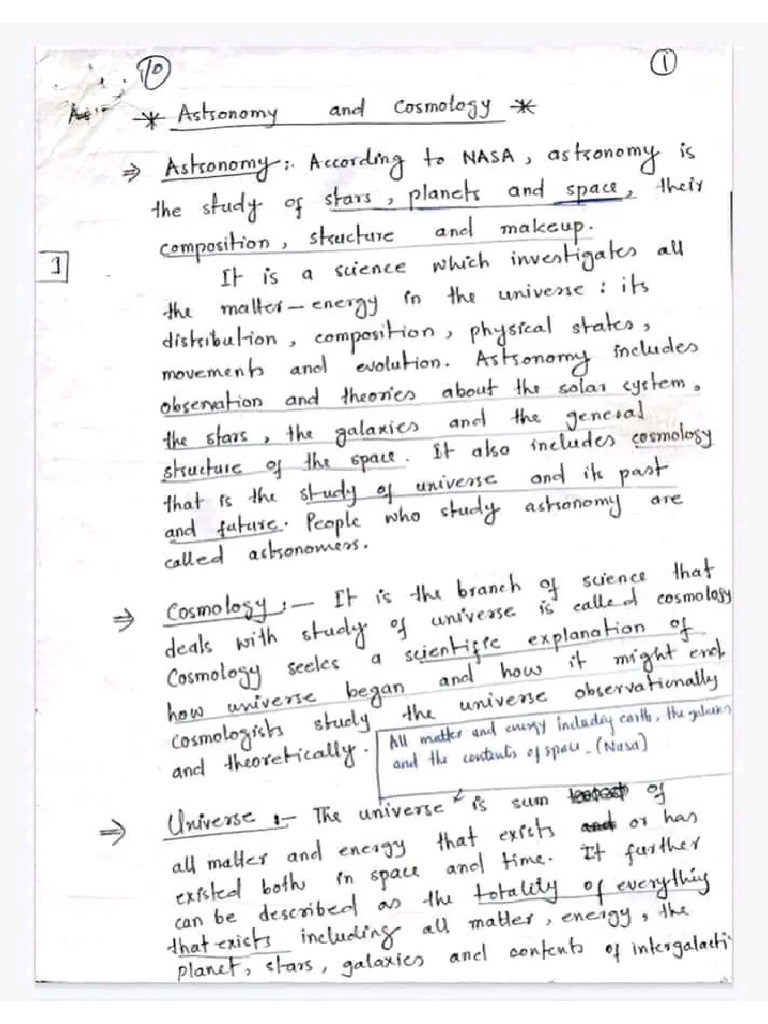 10
1
* Astronomy and Cosmology *
⇒ Astronomy :- According to NASA, astronomy is
the study of stars, planets and space, their
composition, structure and makeup.
1
It is a science which investigates all
the matter-energy in the universe : its
distribution, composition, physical states,
movements and evolution. Astronomy includes
observation and theories about the solar system,
the stars, the galaxies and the general
structure of the space. It also includes cosmology
that is the study of universe and its past
and future. People who study astronomy are
called astronomers.
⇒ Cosmology :- It is the branch of science that
deals with study of universe is called cosmology
Cosmology seeks a scientific explanation of
how universe began and how it might end.
Cosmologists study the universe observationally
and theoretically.
All matter and energy including earth, the galaxies
and the contents of space. (Nasa)
⇒ Universe :- The universe is sum of
all matter and energy that exists or has
existed both in space and time. It further
can be described as the totality of everything
that exists including all matter, energy, the
planet, stars, galaxies and contents of intergalacti